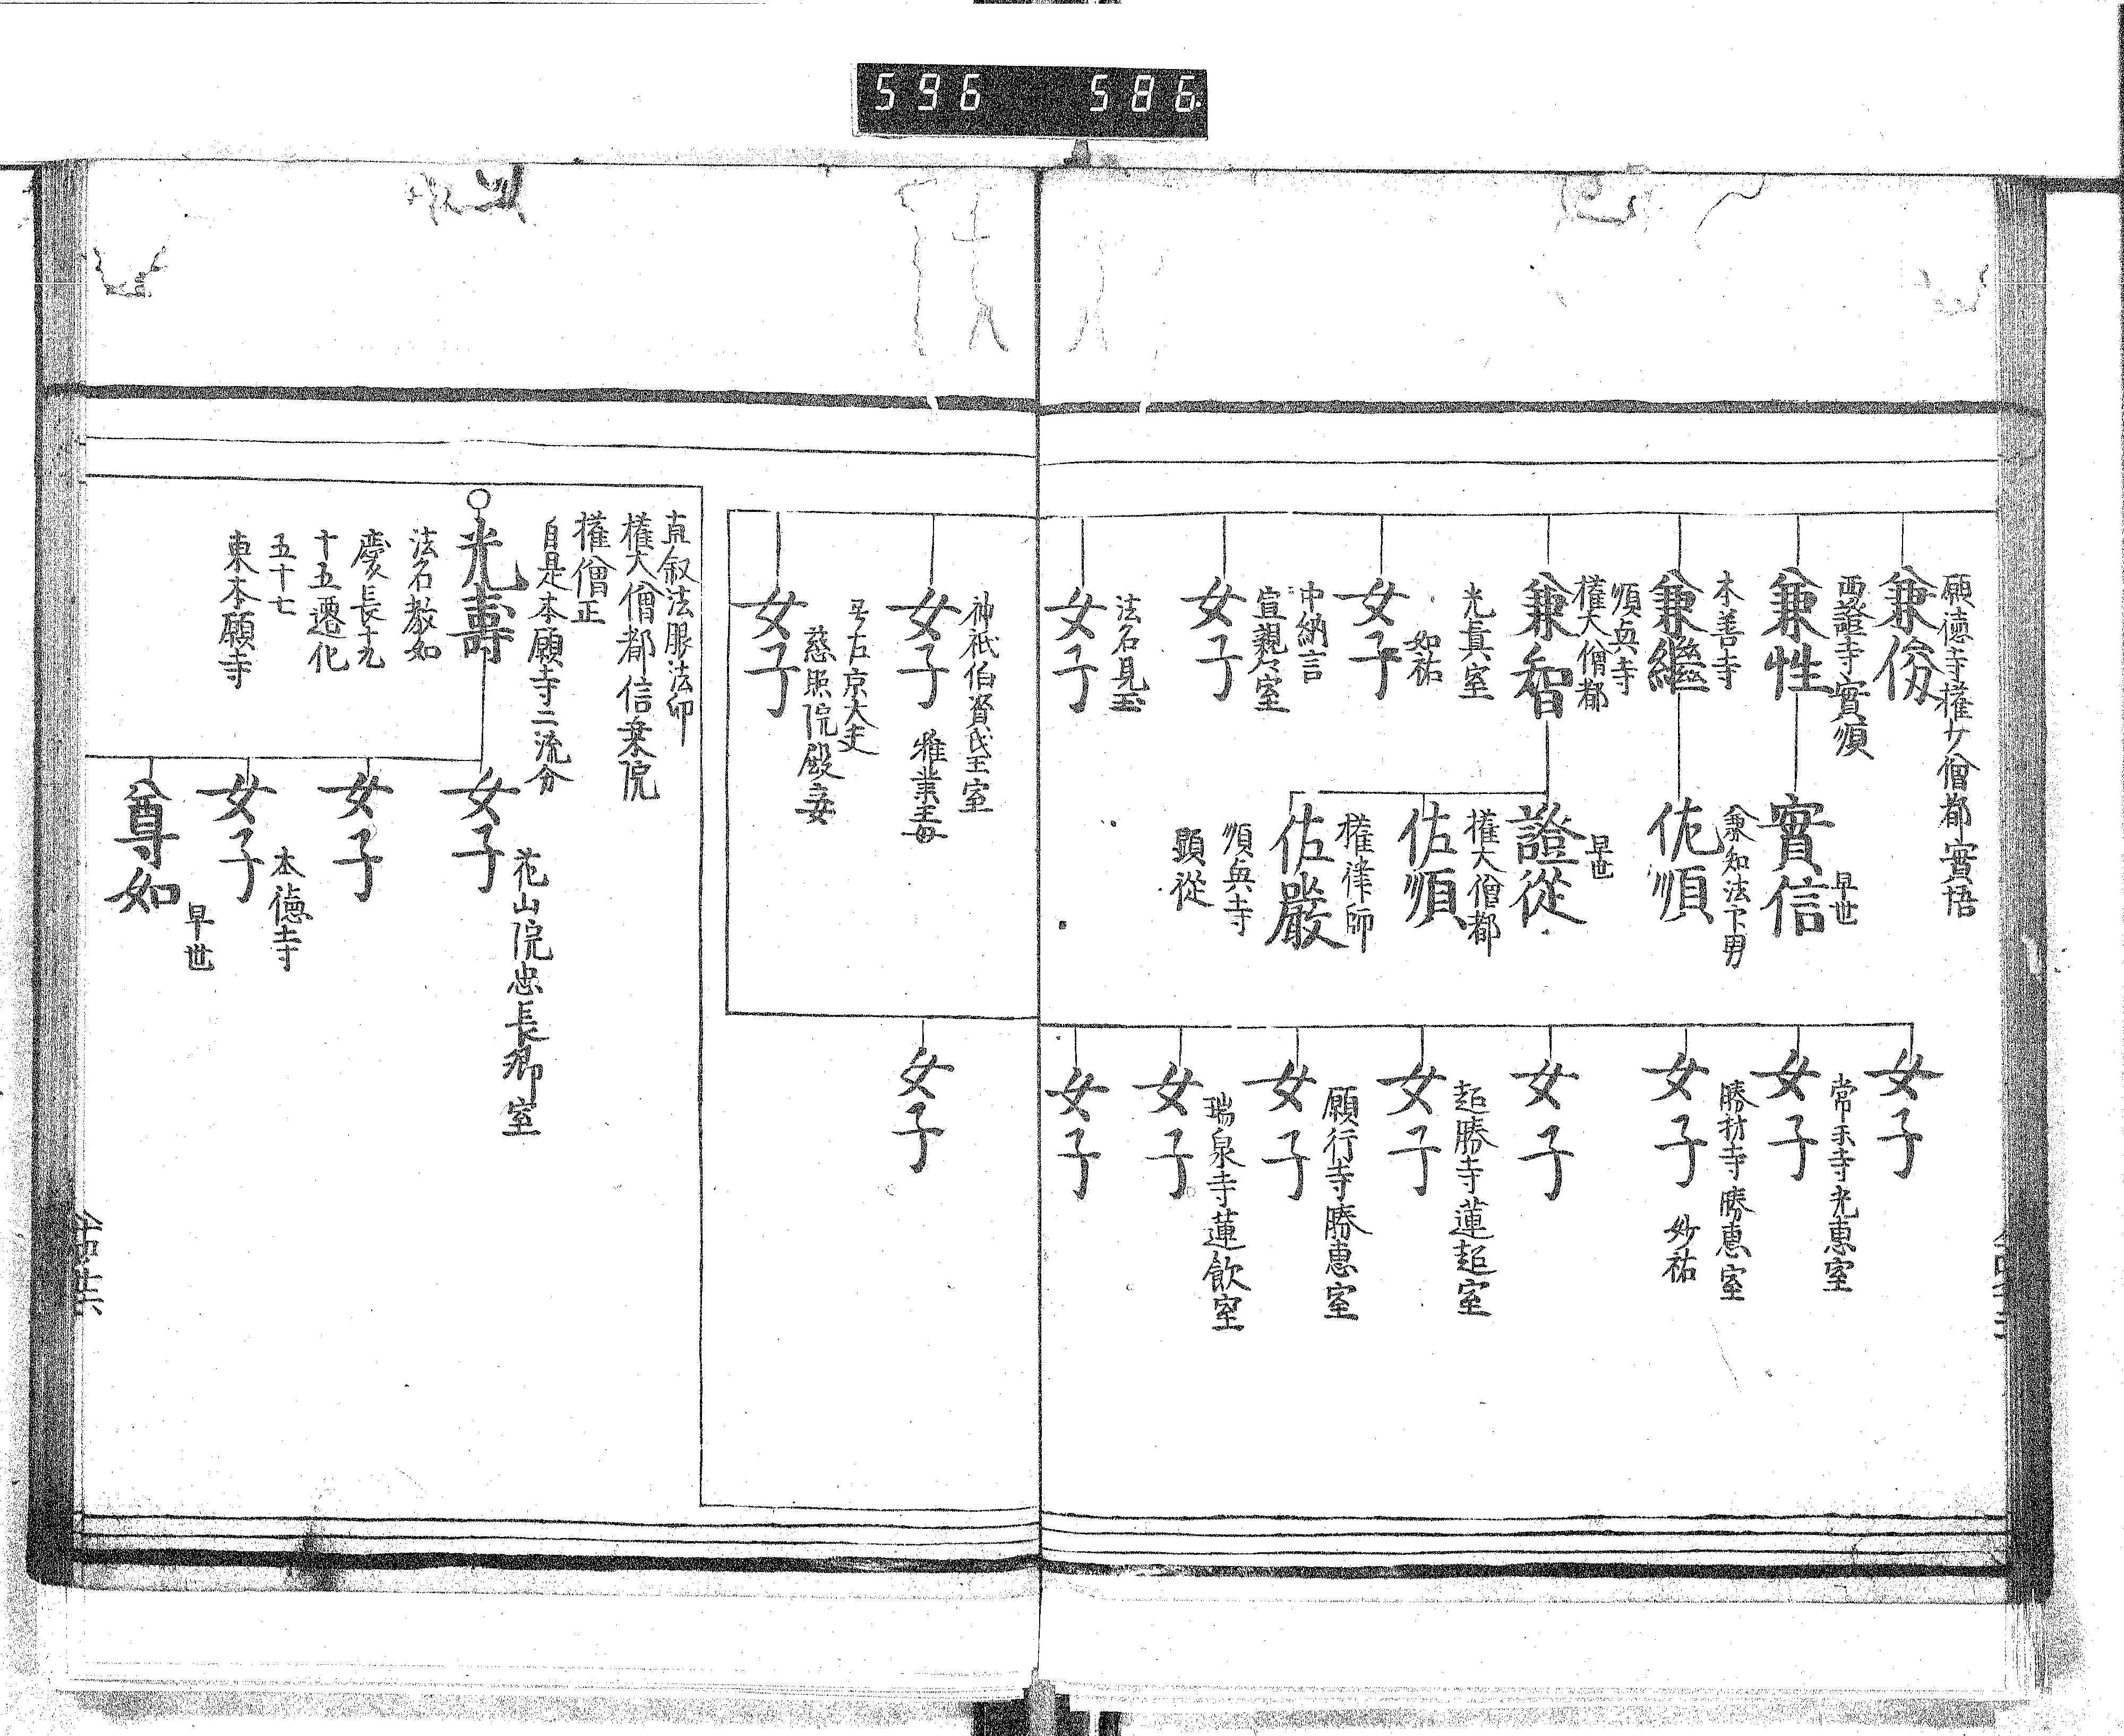 596 586
願德寺權少僧都實悟
兼俊
西證寺實順
兼性
早世
實信
本善寺
兼繼
兼知法印男
佐順
順興寺
權大僧都
兼智
早世
證從
權大僧都
佐順
權律師
佐嚴
順興寺
顯從
光眞室
女子
如祐
中納言
宣親々室
女子
法名見玉
女子
女子
常樂寺光惠室
女子
勝授寺勝惠室
女子 妙祐
女子
超勝寺蓮超室
女子
願行寺勝惠室
女子
瑞泉寺蓮飲室
女子
女子
神祇伯資氏王室
女子 雅業王母
号左京大夫
慈照院殿妾
女子
女子
直叙法眼法印
權大僧都 信樂院
權僧正
自是本願寺二流分
光壽
法名教如
慶長十九
十五遷化
五十七
東本願寺
花山院忠長卿室
女子
女子
本德寺
女子
早世
尊如